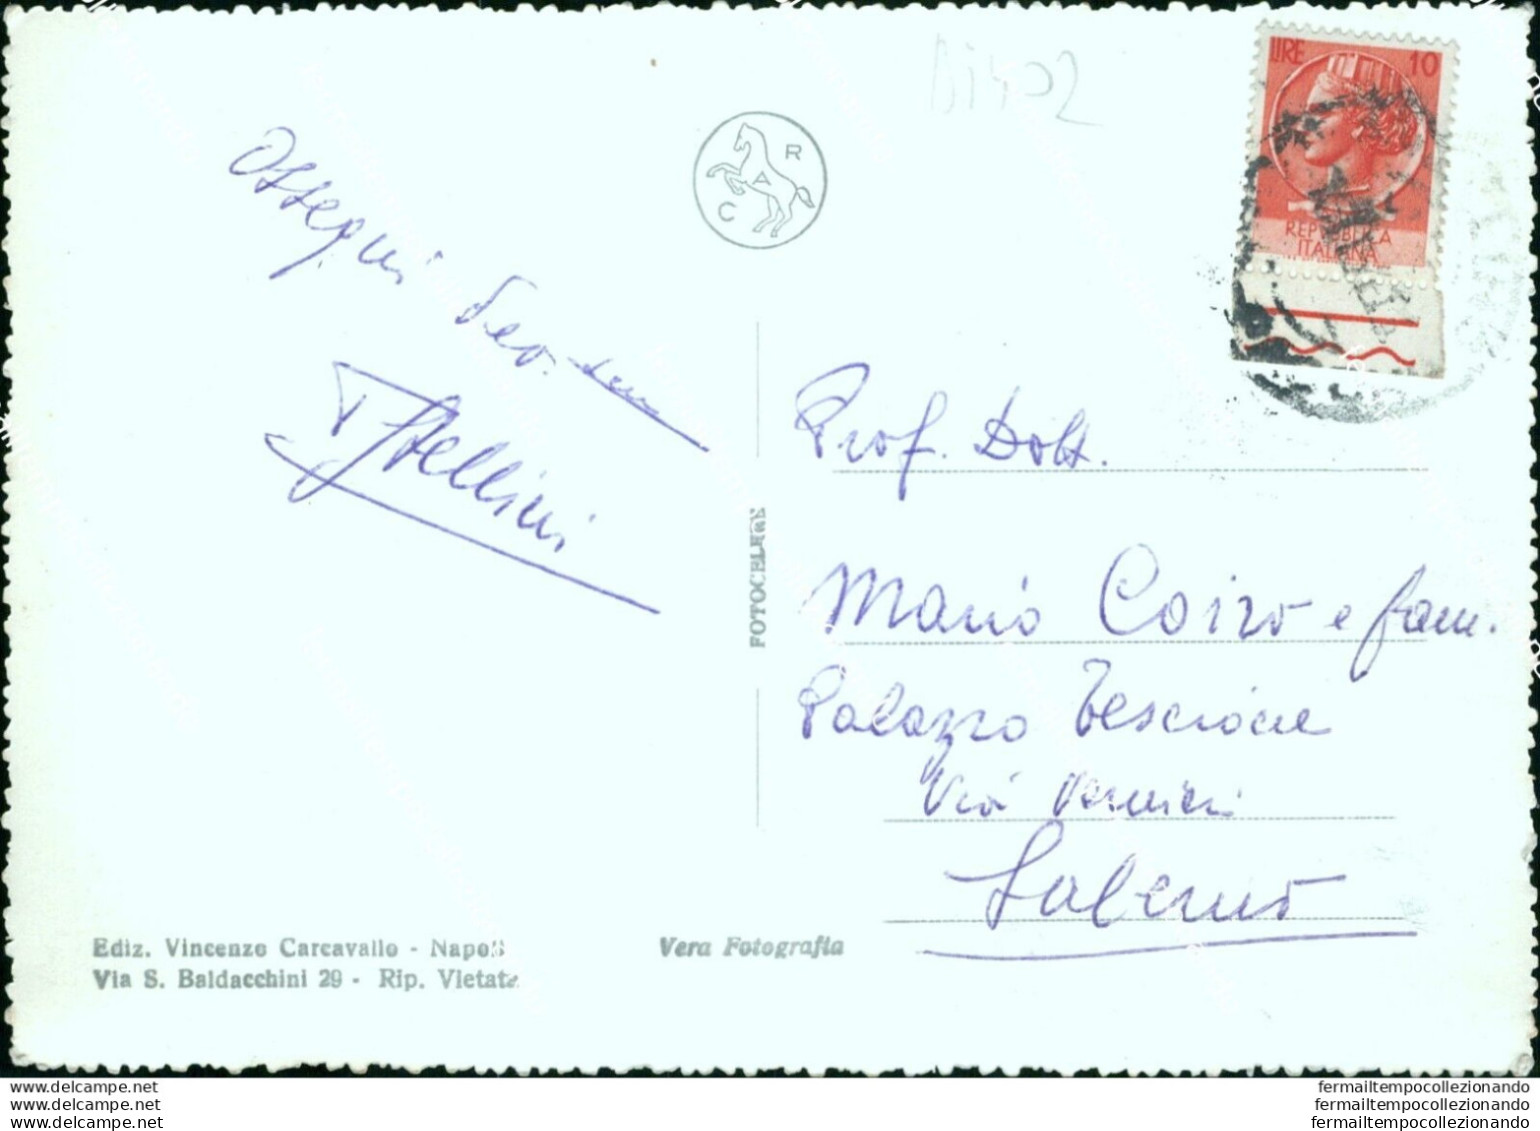 Bi402
LIRE 10
REPUBBLICA
ITALIANA
R
A
C
Ossequi
Stellini
FOTOCELERE
Prof. Dott.
Mario Coiro e fam.
Palazzo Tescione
Via Vernieri
Salerno
Ediz. Vincenzo Carcavallo - Napoli
Via S. Baldacchini 29 - Rip. Vietata
Vera Fotografia
www.delcampe.net
www.delcampe.net
www.delcampe.net
fermailtempocollezionando
fermailtempocollezionando
fermailtempocollezionando